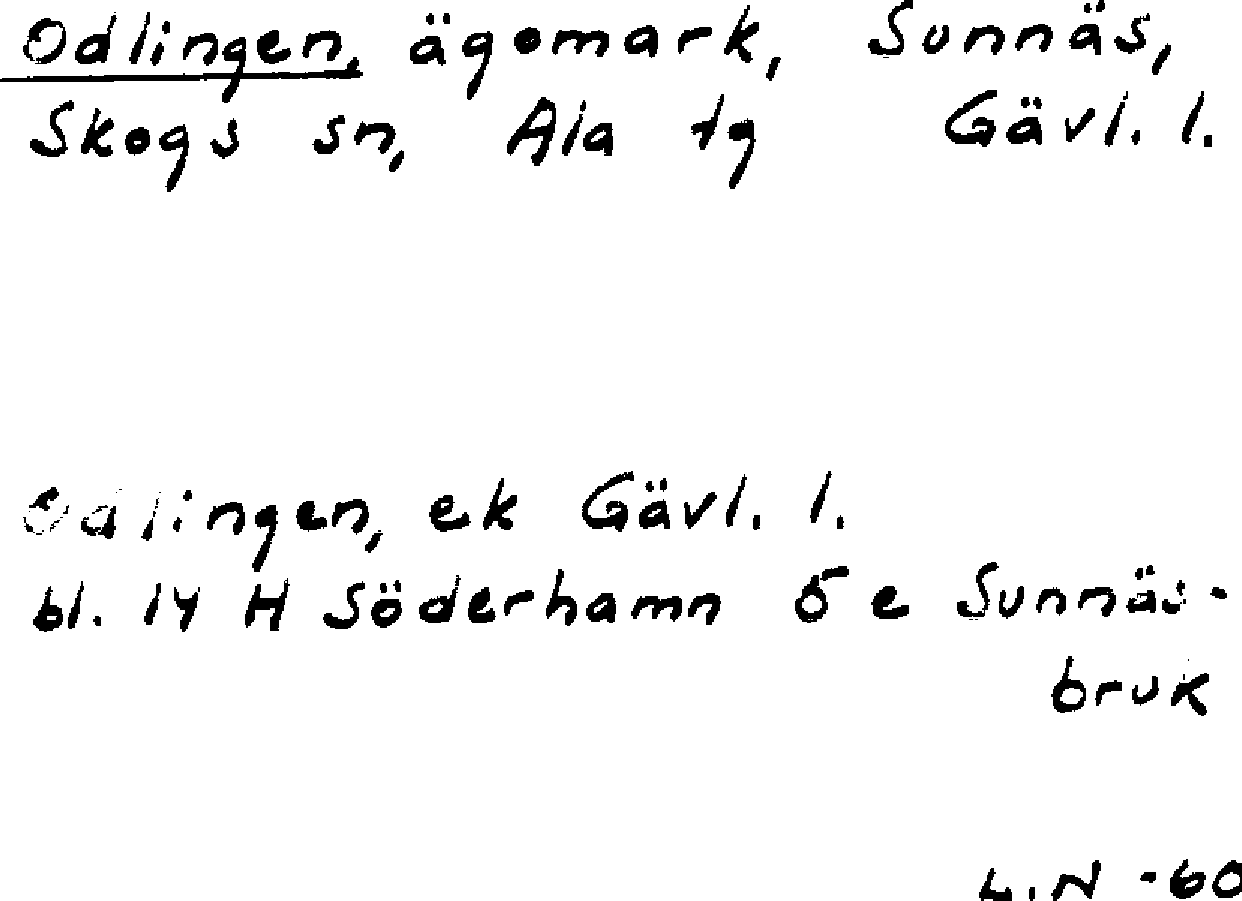 Odlingen, ägomark, Sunnäs,
Skogs sn, Ala tg Gävl. l.
Odlingen, ek Gävl. l.
bl. 14 H Söderhamn 5 e Sunnäs-
bruk
L.N -60